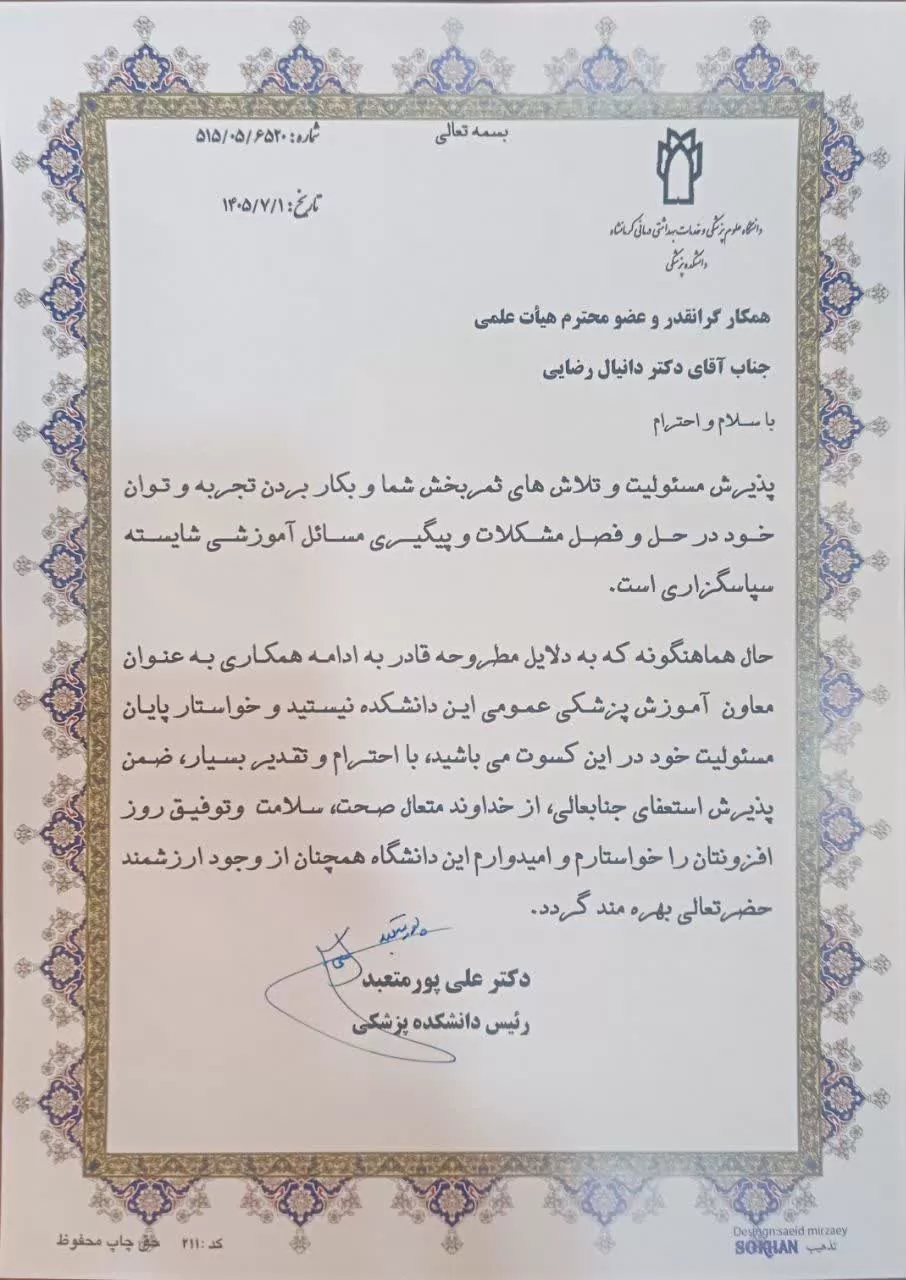 بسمه تعالی
شماره: ۵۱۵/۰۵/۶۵۲۰
تاریخ: ۱۴۰۵/۷/۱
دانشگاه علوم پزشکی و خدمات بهداشتی درمانی کرمانشاه
دانشکده پزشکی
همکار گرانقدر و عضو محترم هیأت علمی
جناب آقای دکتر دانیال رضایی
با سلام و احترام
پذیرش مسئولیت و تلاش های ثمربخش شما و بکار بردن تجربه و توان
خود در حل و فصل مشکلات و پیگیری مسائل آموزشی شایسته
سپاسگزاری است.
حال هماهنگونه که به دلایل مطروحه قادر به ادامه همکاری به عنوان
معاون آموزش پزشکی عمومی این دانشکده نیستید و خواستار پایان
مسئولیت خود در این کسوت می باشید، با احترام و تقدیر بسیار، ضمن
پذیرش استعفای جنابعالی، از خداوند متعال صحت، سلامت وتوفیق روز
افزونتان را خواستارم و امیدوارم این دانشگاه همچنان از وجود ارزشمند
حضرتعالی بهره مند گردد.
دکتر علی پورمتعبد
رئیس دانشکده پزشکی
Desingn:saeid mirzaey
تذهیب SOKHAN
کد : ۲۱۱ حق چاپ محفوظ